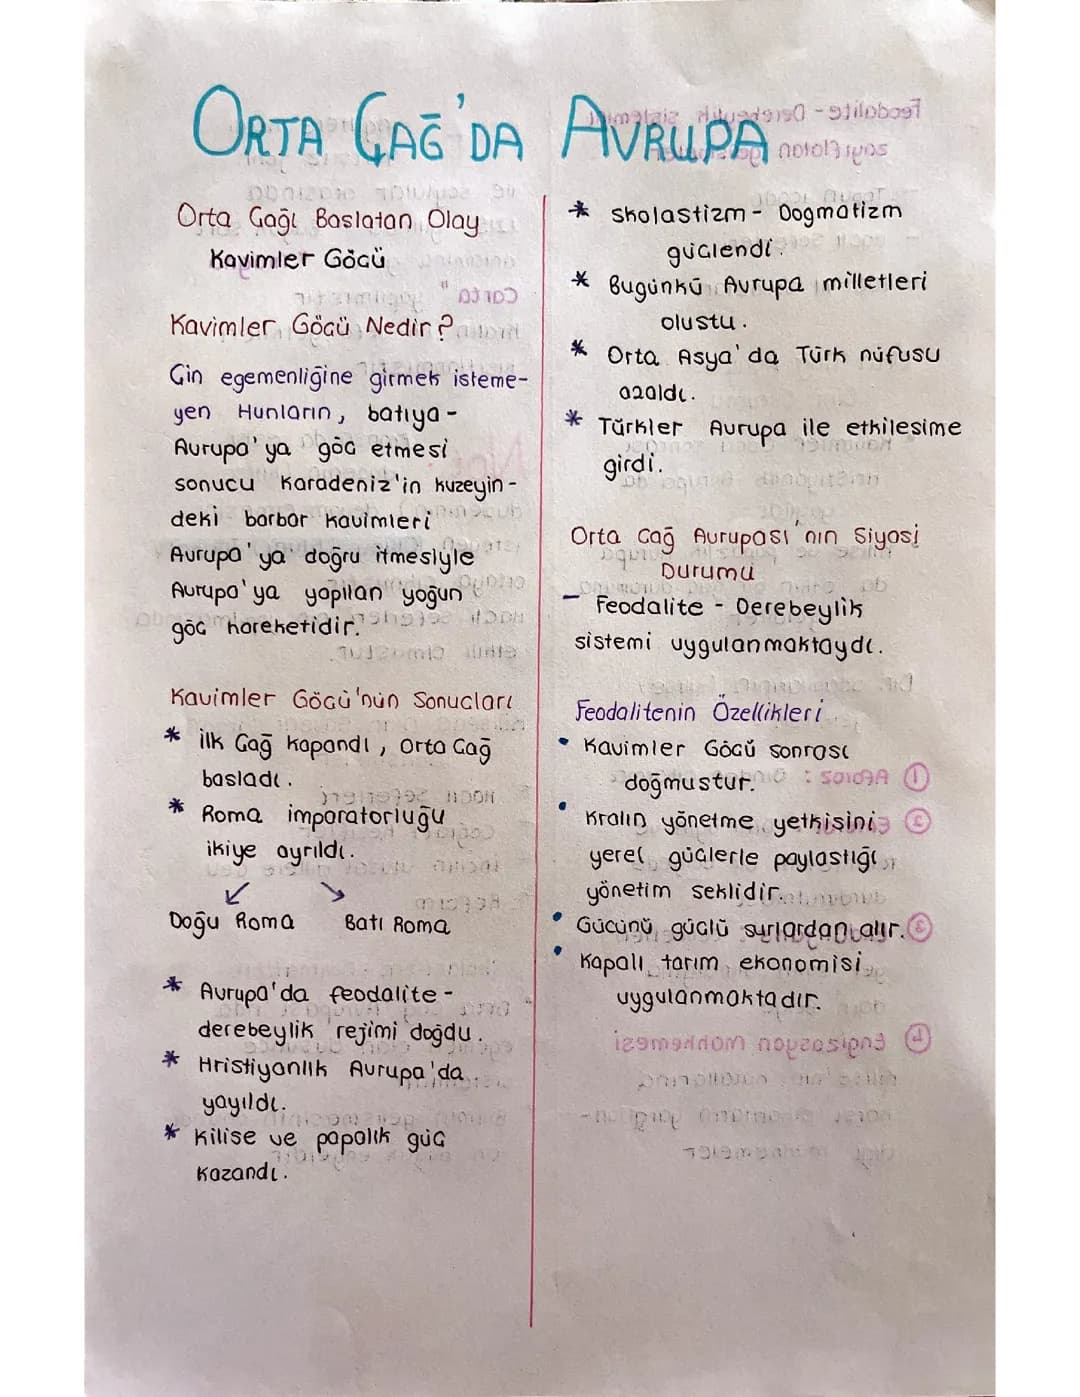 ORTA ÇAĞ'DA AVRUPA
Orta Çağı Baslatan Olay
Kavimler Göçü
Kavimler Göçü Nedir?
Çin egemenliğine girmek isteme-
yen Hunların, batıya-
Avrupa'ya göç etmesi
sonucu Karadeniz'in kuzeyin-
deki barbar kavimleri
Avrupa'ya doğru itmesiyle
Avrupa'ya yapılan yoğun
göç hareketidir.
Kavimler Göçü'nün Sonuçları
* İlk Çağ kapandı, Orta Çağ
basladı.
* Roma imparatorluğu
ikiye ayrıldı.
↙ ↘
Doğu Roma Batı Roma
* Avrupa'da feodalite-
derebeylik rejimi doğdu.
* Hristiyanlık Avrupa'da
yayıldı.
* Kilise ve papalık güç
kazandı.
* Skolastizm - Dogmatizm
güçlendi.
* Bugünkü Avrupa milletleri
olustu.
* Orta Asya'da Türk nüfusu
azaldı.
* Türkler Avrupa ile etkilesime
girdi.
Orta Çağ Avrupası'nın Siyasi
Durumu
- Feodalite - Derebeylik
sistemi uygulanmaktaydı.
Feodalitenin Özellikleri
• Kavimler Göçü sonrası
doğmustur.
• Kralın yönetme yetkisini
yerel güçlerle paylastığı
yönetim seklidir.
• Gücünü güçlü surlardan alır.
• Kapalı tarım ekonomisi
uygulanmaktadır.